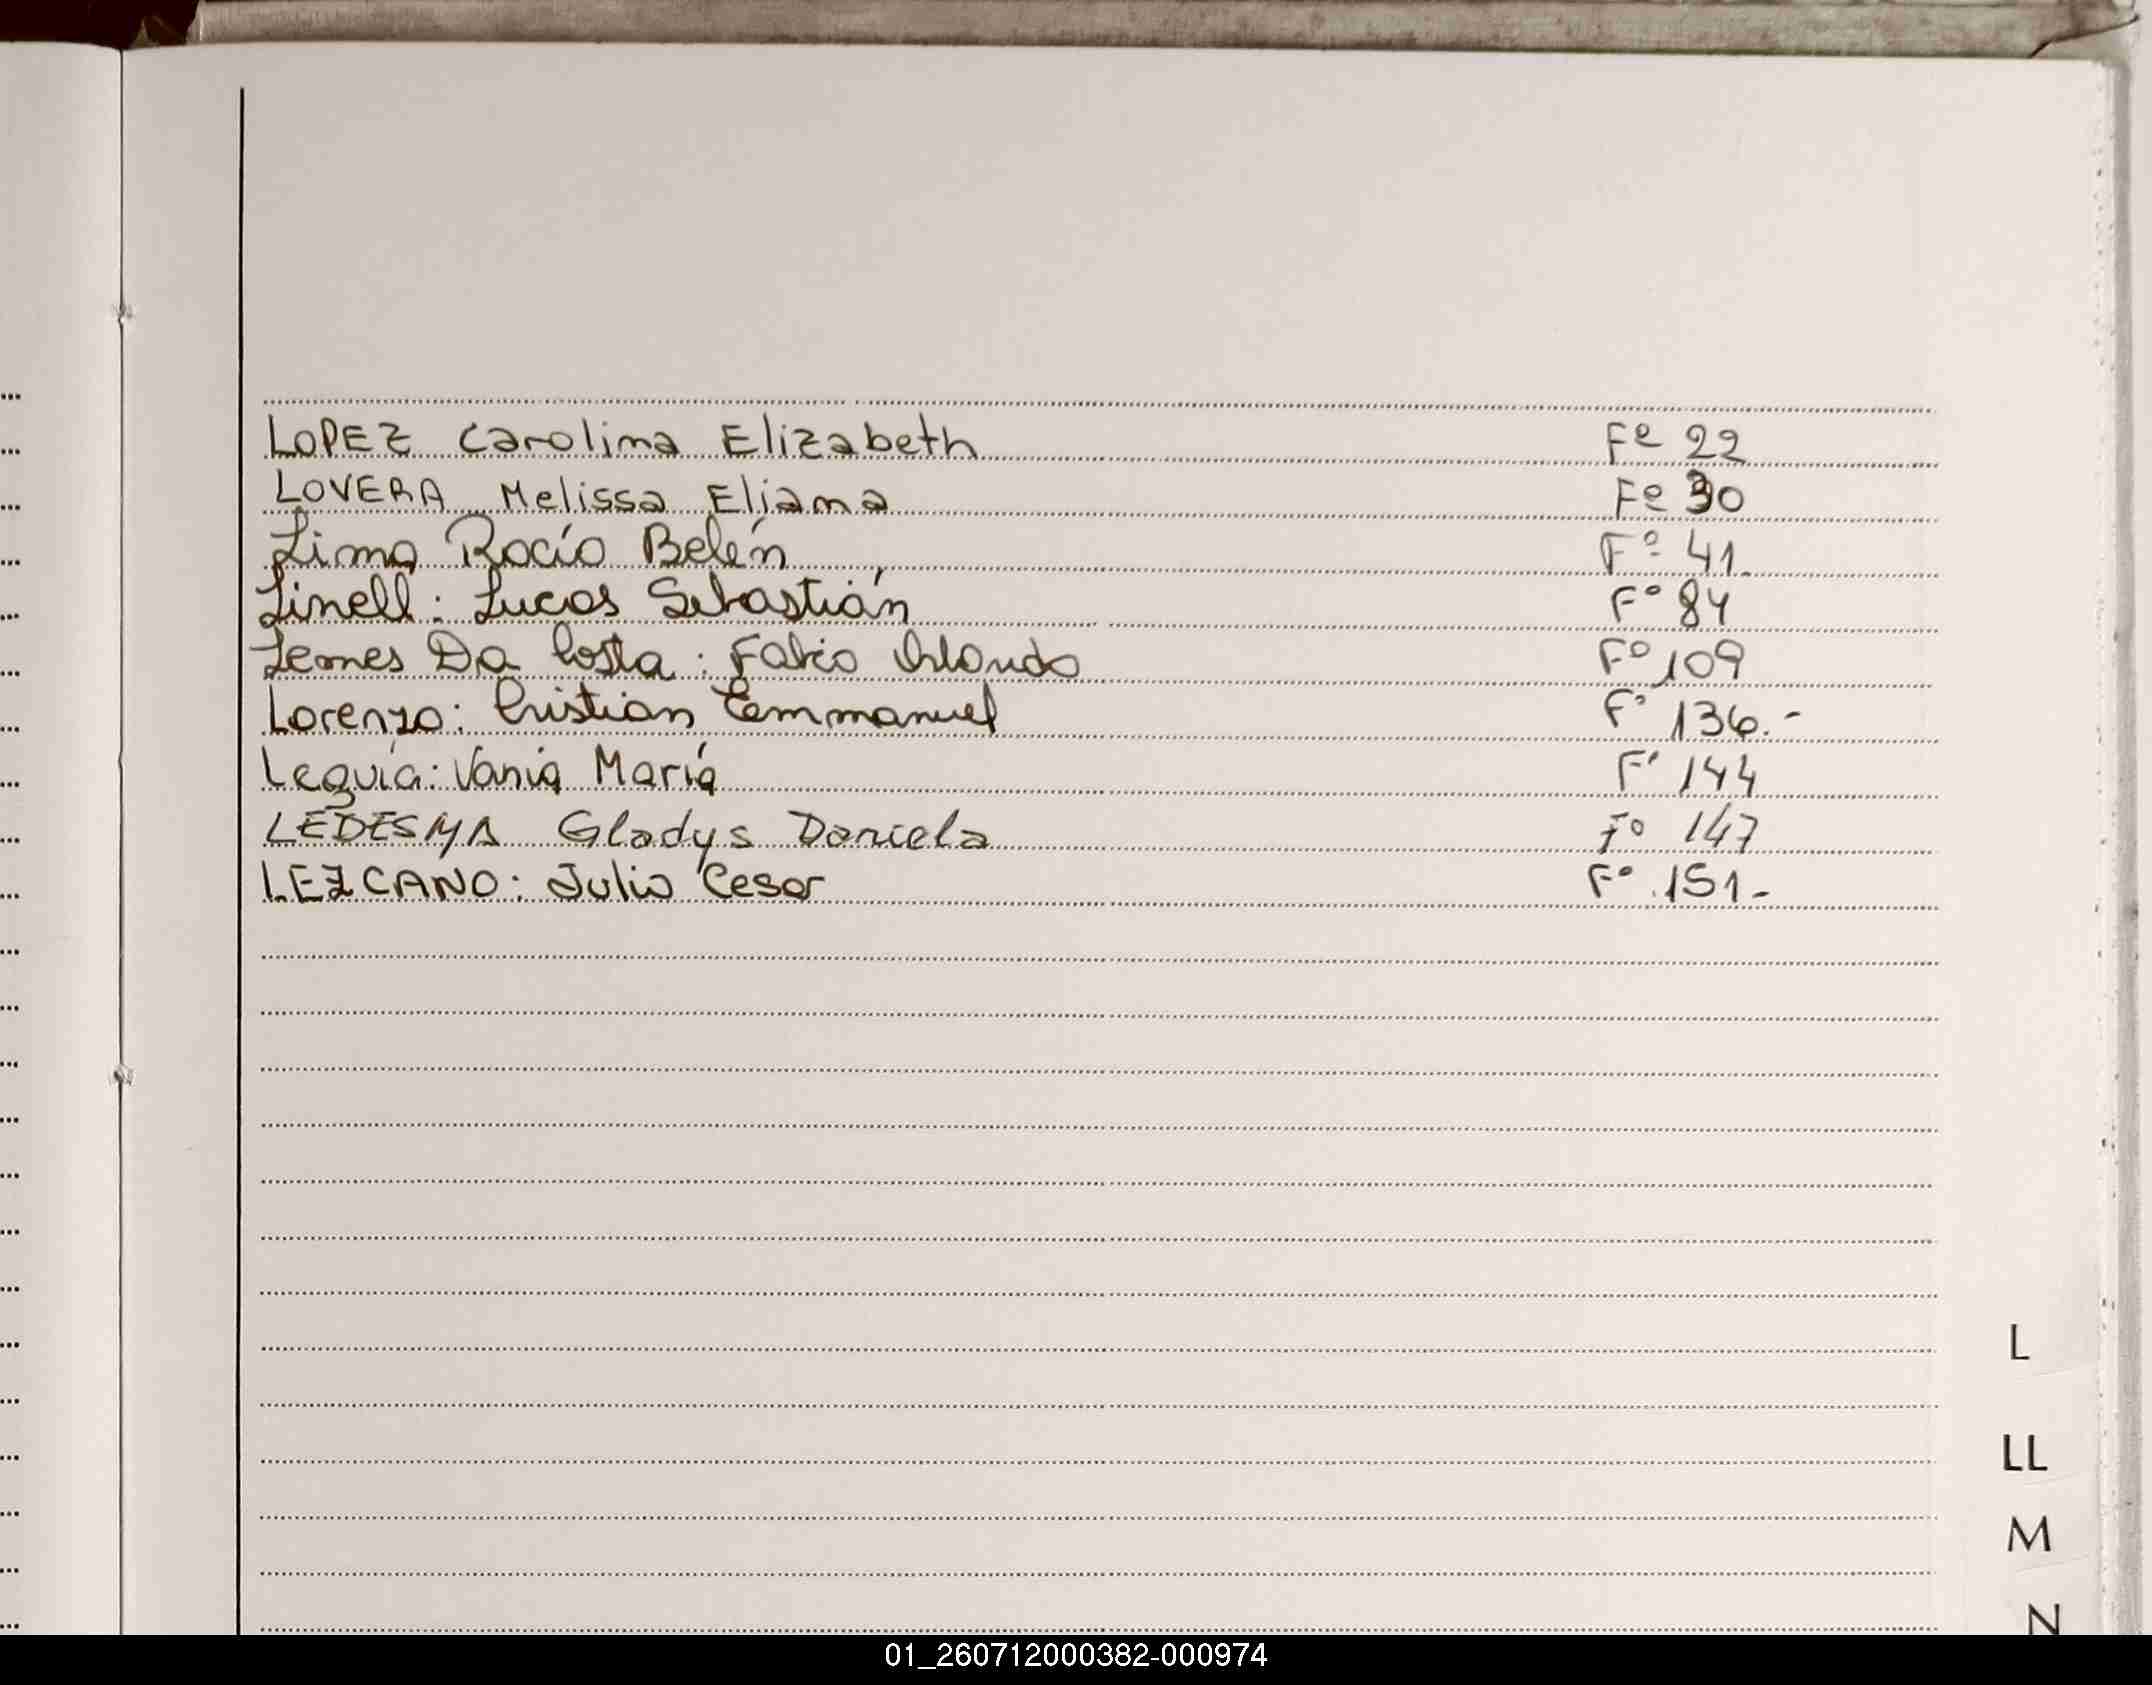 LOPEZ Carolina Elizabeth Fº 22
LOVERA Melissa Eliana Fº 30
Lima Rocío Belén Fº 41.
Linell: Lucas Sebastián Fº 84
Lemes Da Costa: Fabio Orlando Fº 109
Lorenzo: Cristian Emmanuel Fº 136.-
Leguía: Vania María Fº 144
LEDESMA Gladys Daniela Fº 147
LEZCANO: Julio Cesar Fº 151-
L
LL
M
N
01_260712000382-000974